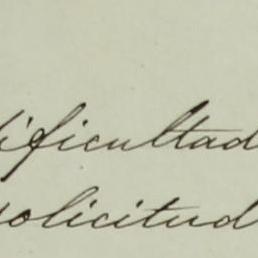 dificultad
solicitud